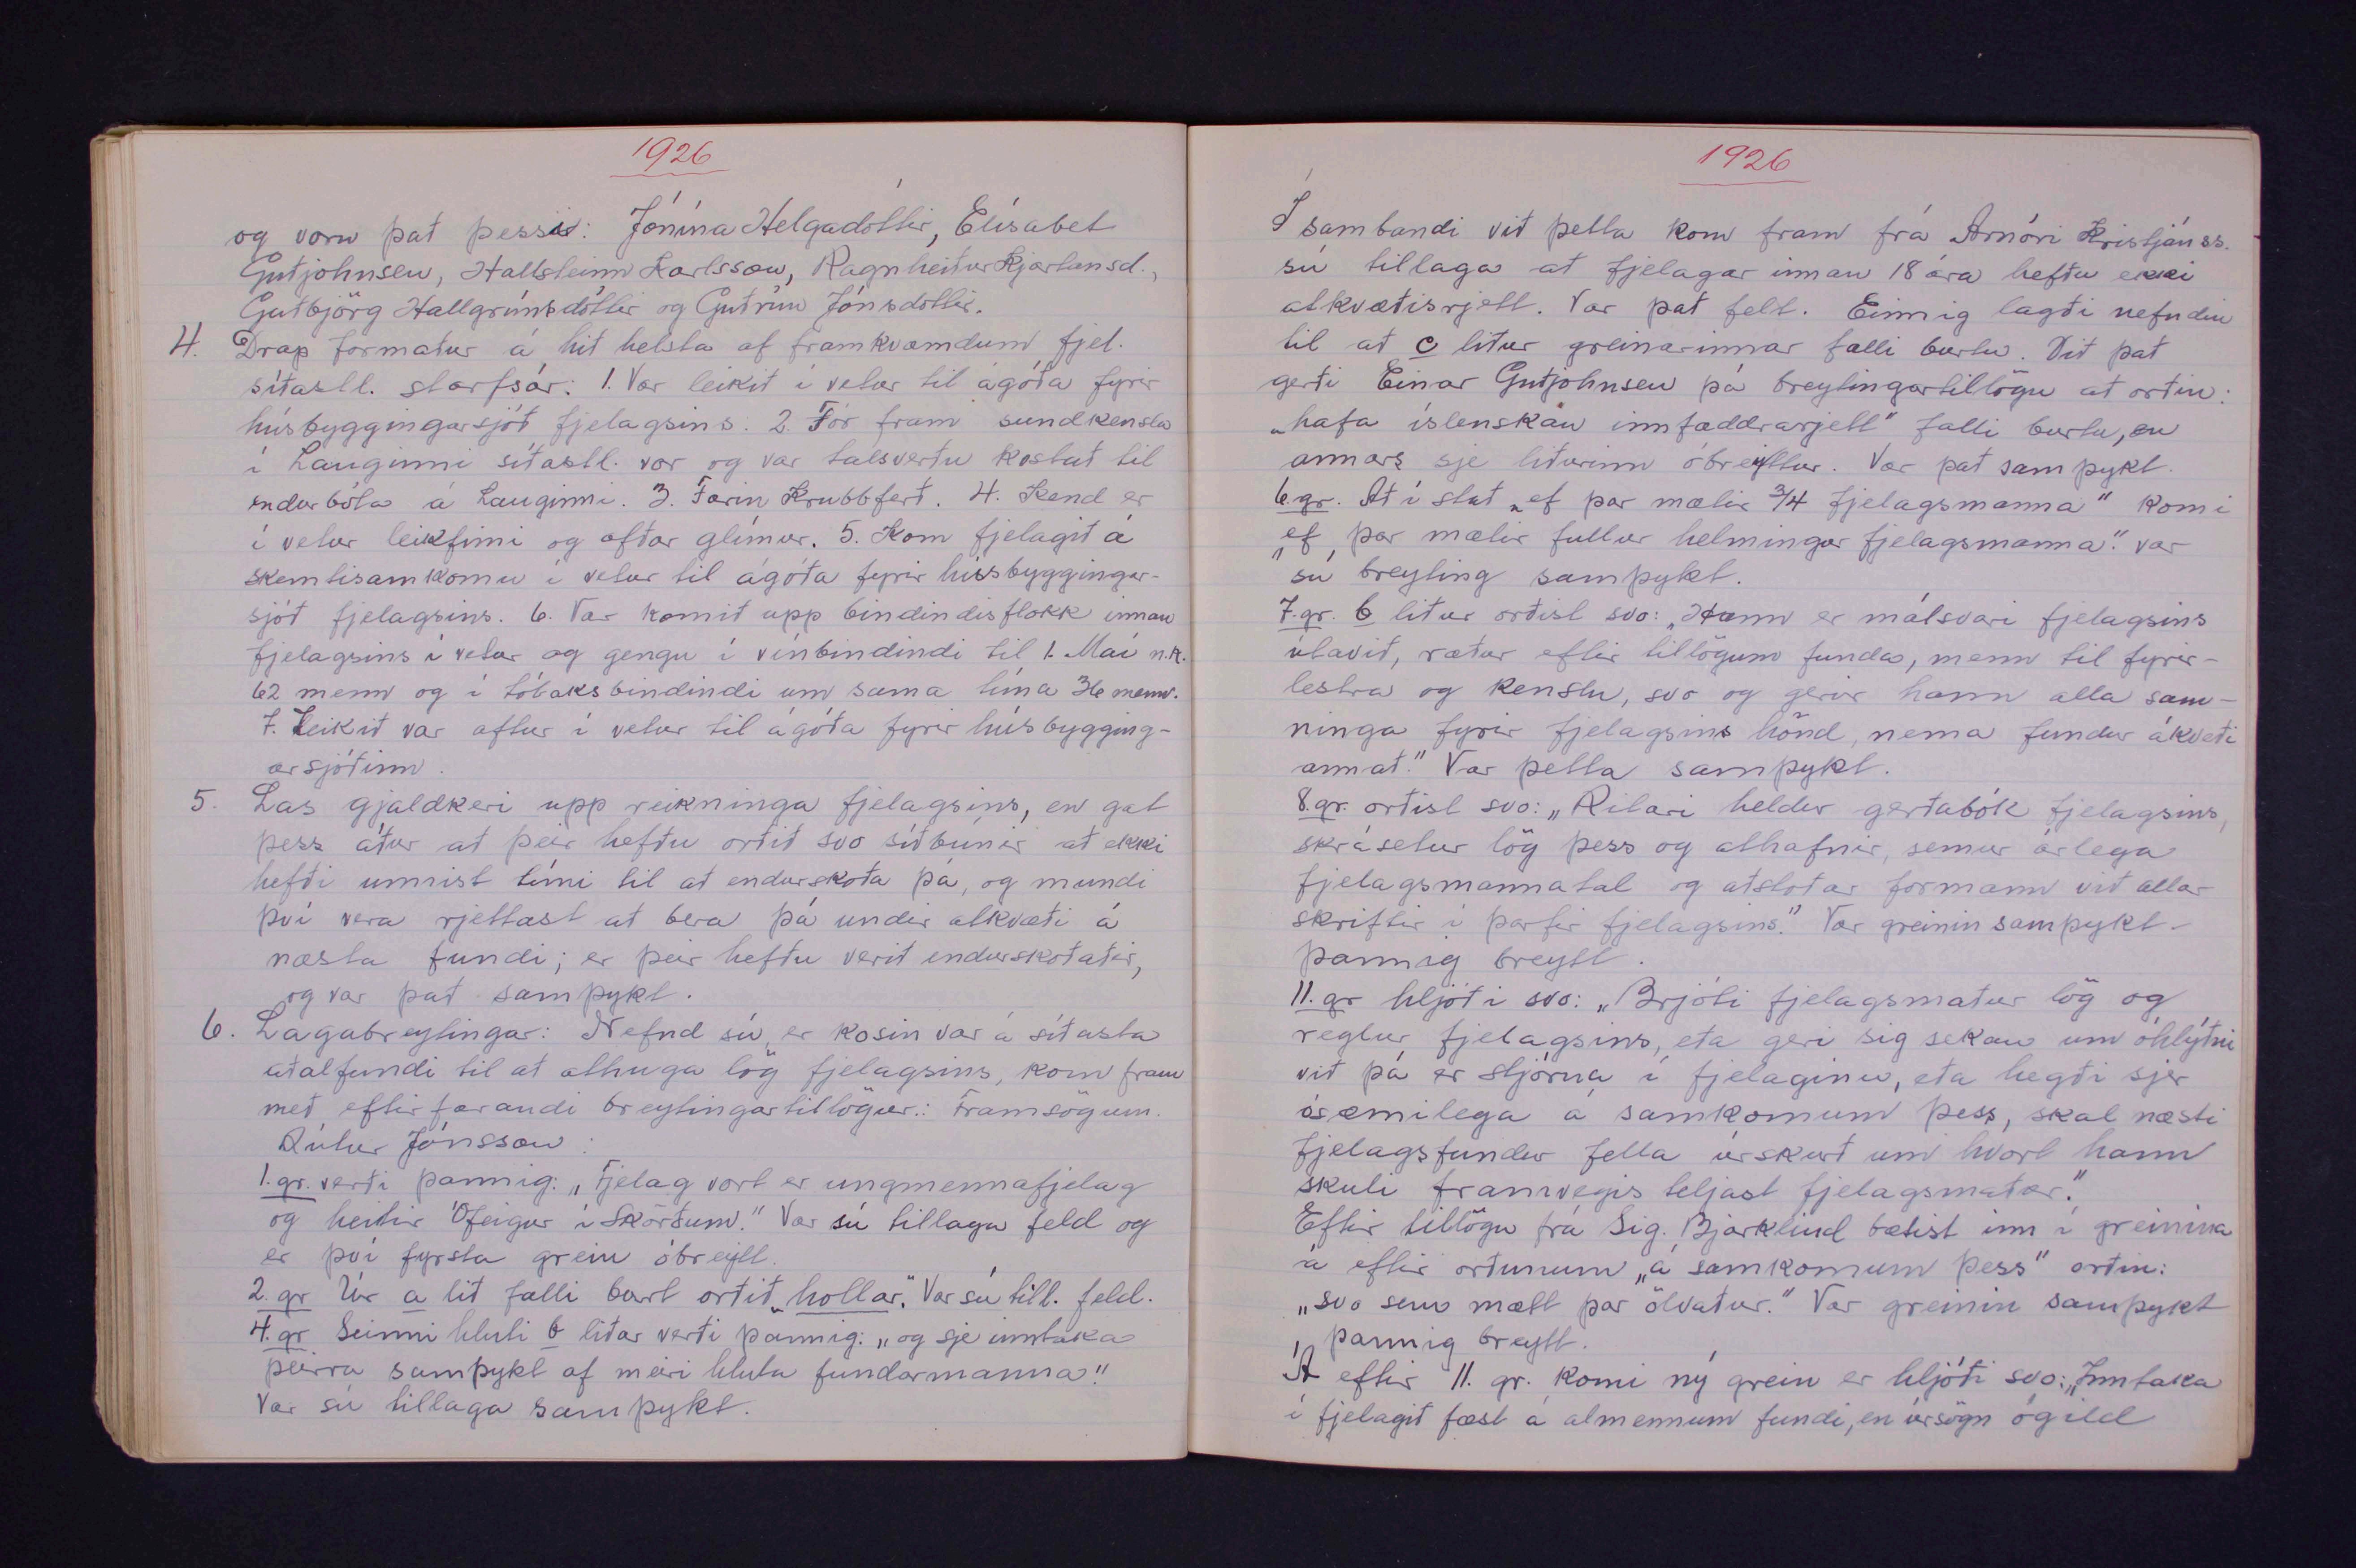 1926
og voru það þessir: Jónína Helgadóttir, Elísabet
Guðjohnsen, Hallsteinn Karlsson, Ragnheiður Kjartansd.,
Guðbjörg Hallgrímsdóttir og Guðrún Jónsdóttir.
4. Drap formaður á hið helsta af framkvæmdum fjel.
síðastl. starfsár: 1. Var leikið í vetur til ágóða fyrir
húsbyggingarsjóð fjelagsins: 2. Fór fram sundkensla
í Lauginni síðastl. vor og var talsverðu kostað til
endurbóta á Lauginni. 3. Farin Krubbferð. 4. Kend er
í vetur leikfimi og aftar glímur. 5. Kom fjelagið á
skemtisamkomu í vetur til ágóða fyrir hússbyggingar-
sjóð fjelagsins. 6. Var komið upp bindindisflokk innan
fjelagsins í vetur og gengu í vínbindindi til 1. Maí n.k.
62 menn og í tóbaksbindindi um sama tíma 36 menn.
7. Leikið var aftur í vetur til ágóða fyrir húsbygging-
arsjóðinn.
5. Las gjaldkeri upp reikninga fjelagsins, en gat
þess áður að þeir hefðu orðið svo síðbúnir að ekki
hefði unnist tími til að endurskoða þá, og mundi
því vera rjettast að bera þá undir atkvæði á
næsta fundi; er þeir hefðu verið endurskoðaðir,
og var það samþykt.
6. Lagabreytingar: Nefnd sú, er kosin var á síðasta
aðalfundi til að athuga lög fjelagsins, kom fram
með eftirfarandi breytingartillögur: Framsögum.
Rútur Jónsson:
1. gr. verði þannig: „Fjelag vort er ungmennafjelag
og heitir Ófeigur í Skörðum." Var sú tillaga feld og
er því fyrsta grein óbreytt.
2. gr Úr a lið falli burt orðið „hollar". Var sú till. feld.
4. gr Seinni hluti b liðar verði þannig: „og sje inntaka
þeirra samþykt af meiri hluta fundarmanna."
Var sú tillaga samþykt.
1926
Í sambandi við þetta kom fram frá Arnóri Kristjánss.
sú tillaga að fjelagar innan 18 ára hefðu ekki
atkvæðisrjett. Var það felt. Einnig lagði nefndin
til að c liður greinarinnar falli burtu. Við það
gerði Einar Guðjohnsen þá breytingartillögu að orðin:
„hafa íslenskan innfæddrarjett" falli burtu, en
annars sje liðurinn óbreyttur. Var það samþykt.
6. gr. Að í stað „ef þar mælir 3/4 fjelagsmanna" komi
„ef þar mælir fullur helmingur fjelagsmanna". var
sú breyting samþykt.
7. gr. b liður orðist svo: „Hann er málsvari fjelagsins
útavið, ræður eftir tillögum funda, menn til fyrir-
lestra og kenslu, svo og gerir hann alla sam-
ninga fyrir fjelagsins hönd, nema fundur ákveði
annað." Var þetta samþykt.
8. gr. orðist svo: „Ritari heldur gerðabók fjelagsins,
skrásetur lög þess og athafnir, semur árlega
fjelagsmannatal og aðstoðar formann við allar
skriftir í þarfir fjelagsins." Var greinin samþykt
þannig breytt.
11. gr hljóði svo: „Brjóti fjelagsmaður lög og
reglur fjelagsins, eða geri sig sekan um óhlýðni
við þá er stjórna í fjelaginu, eða hegði sjer
ósæmilega á samkomum þess, skal næsti
fjelagsfundur fella úrskurð um hvort hann
skuli framvegis teljast fjelagsmaður."
Eftir tillögu frá Sig. Bjarklind bætist inn í greinina
á eftir orðunum „á samkomum þess" orðin:
„svo sem mætt þar ölvaður." Var greinin samþykt
þannig breytt.
Á eftir 11. gr. komi ný grein er hljóði svo: „Inntaka
í fjelagið fæst á almennum fundi, en úrsögn ógild